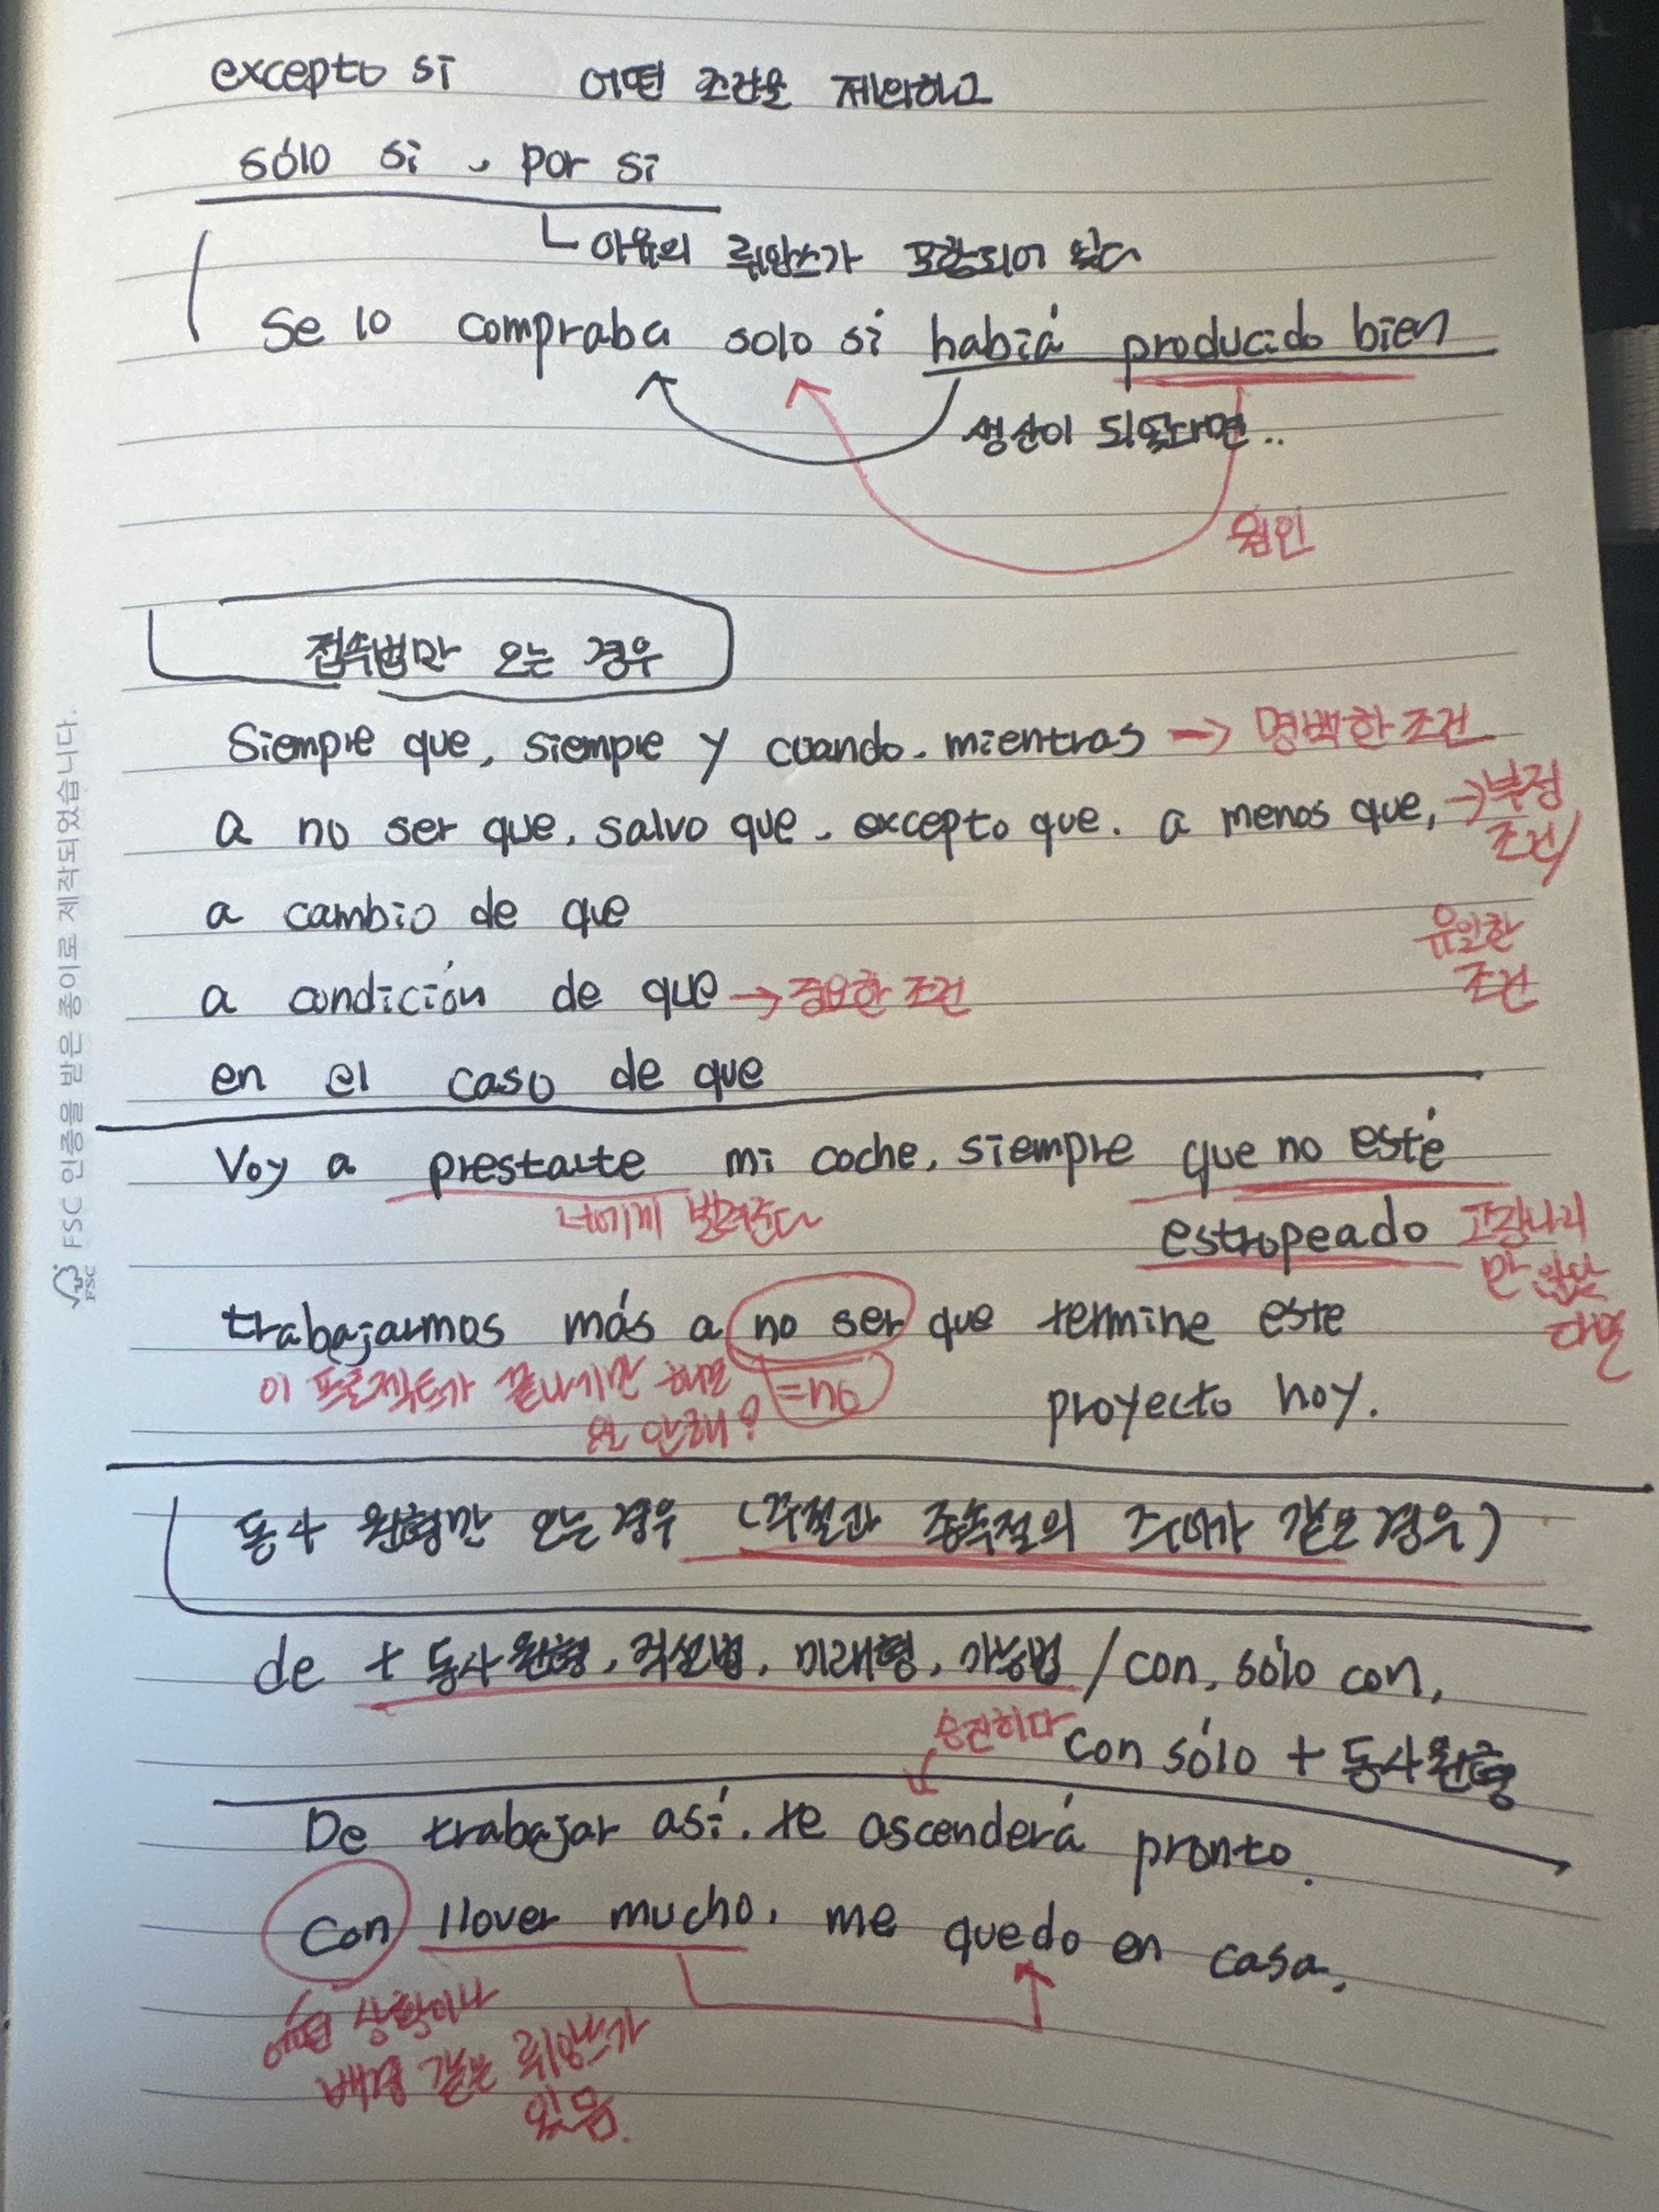 excepto si 어떤 조건을 제외하고
sólo si, por si
이유의 뉘앙스가 포함되어 있다
Se lo compraba solo si habiá producido bien
생산이 되었다면..
원인
접속법만 오는 경우
Siempre que, siempre y cuando. mientras → 명백한 조건
a no ser que, salvo que. excepto que. a menos que, → 부정 조건
a cambio de que
유일한 조건
a condición de que → 중요한 조건
en el caso de que
Voy a prestarte mi coche, siempre que no esté
너에게 빌려준다
estropeado 고장나지만 않는다면
trabajarmos más a no ser que termine este
이 프로젝트가 끝나기만 하면 =no
일 안해?
proyecto hoy.
동사 원형만 오는 경우 (주절과 종속절의 주어가 같은 경우)
de + 동사원형, 직설법, 미래형, 가능법 / con, sólo con,
승진하다
con sólo + 동사원형
De trabajar así. te ascenderá pronto.
Con llover mucho, me quedo en casa.
어떤 상황이나
배경 같은 뉘앙스가
있음.
FSC FSC 인증을 받은 종이로 제작되었습니다.